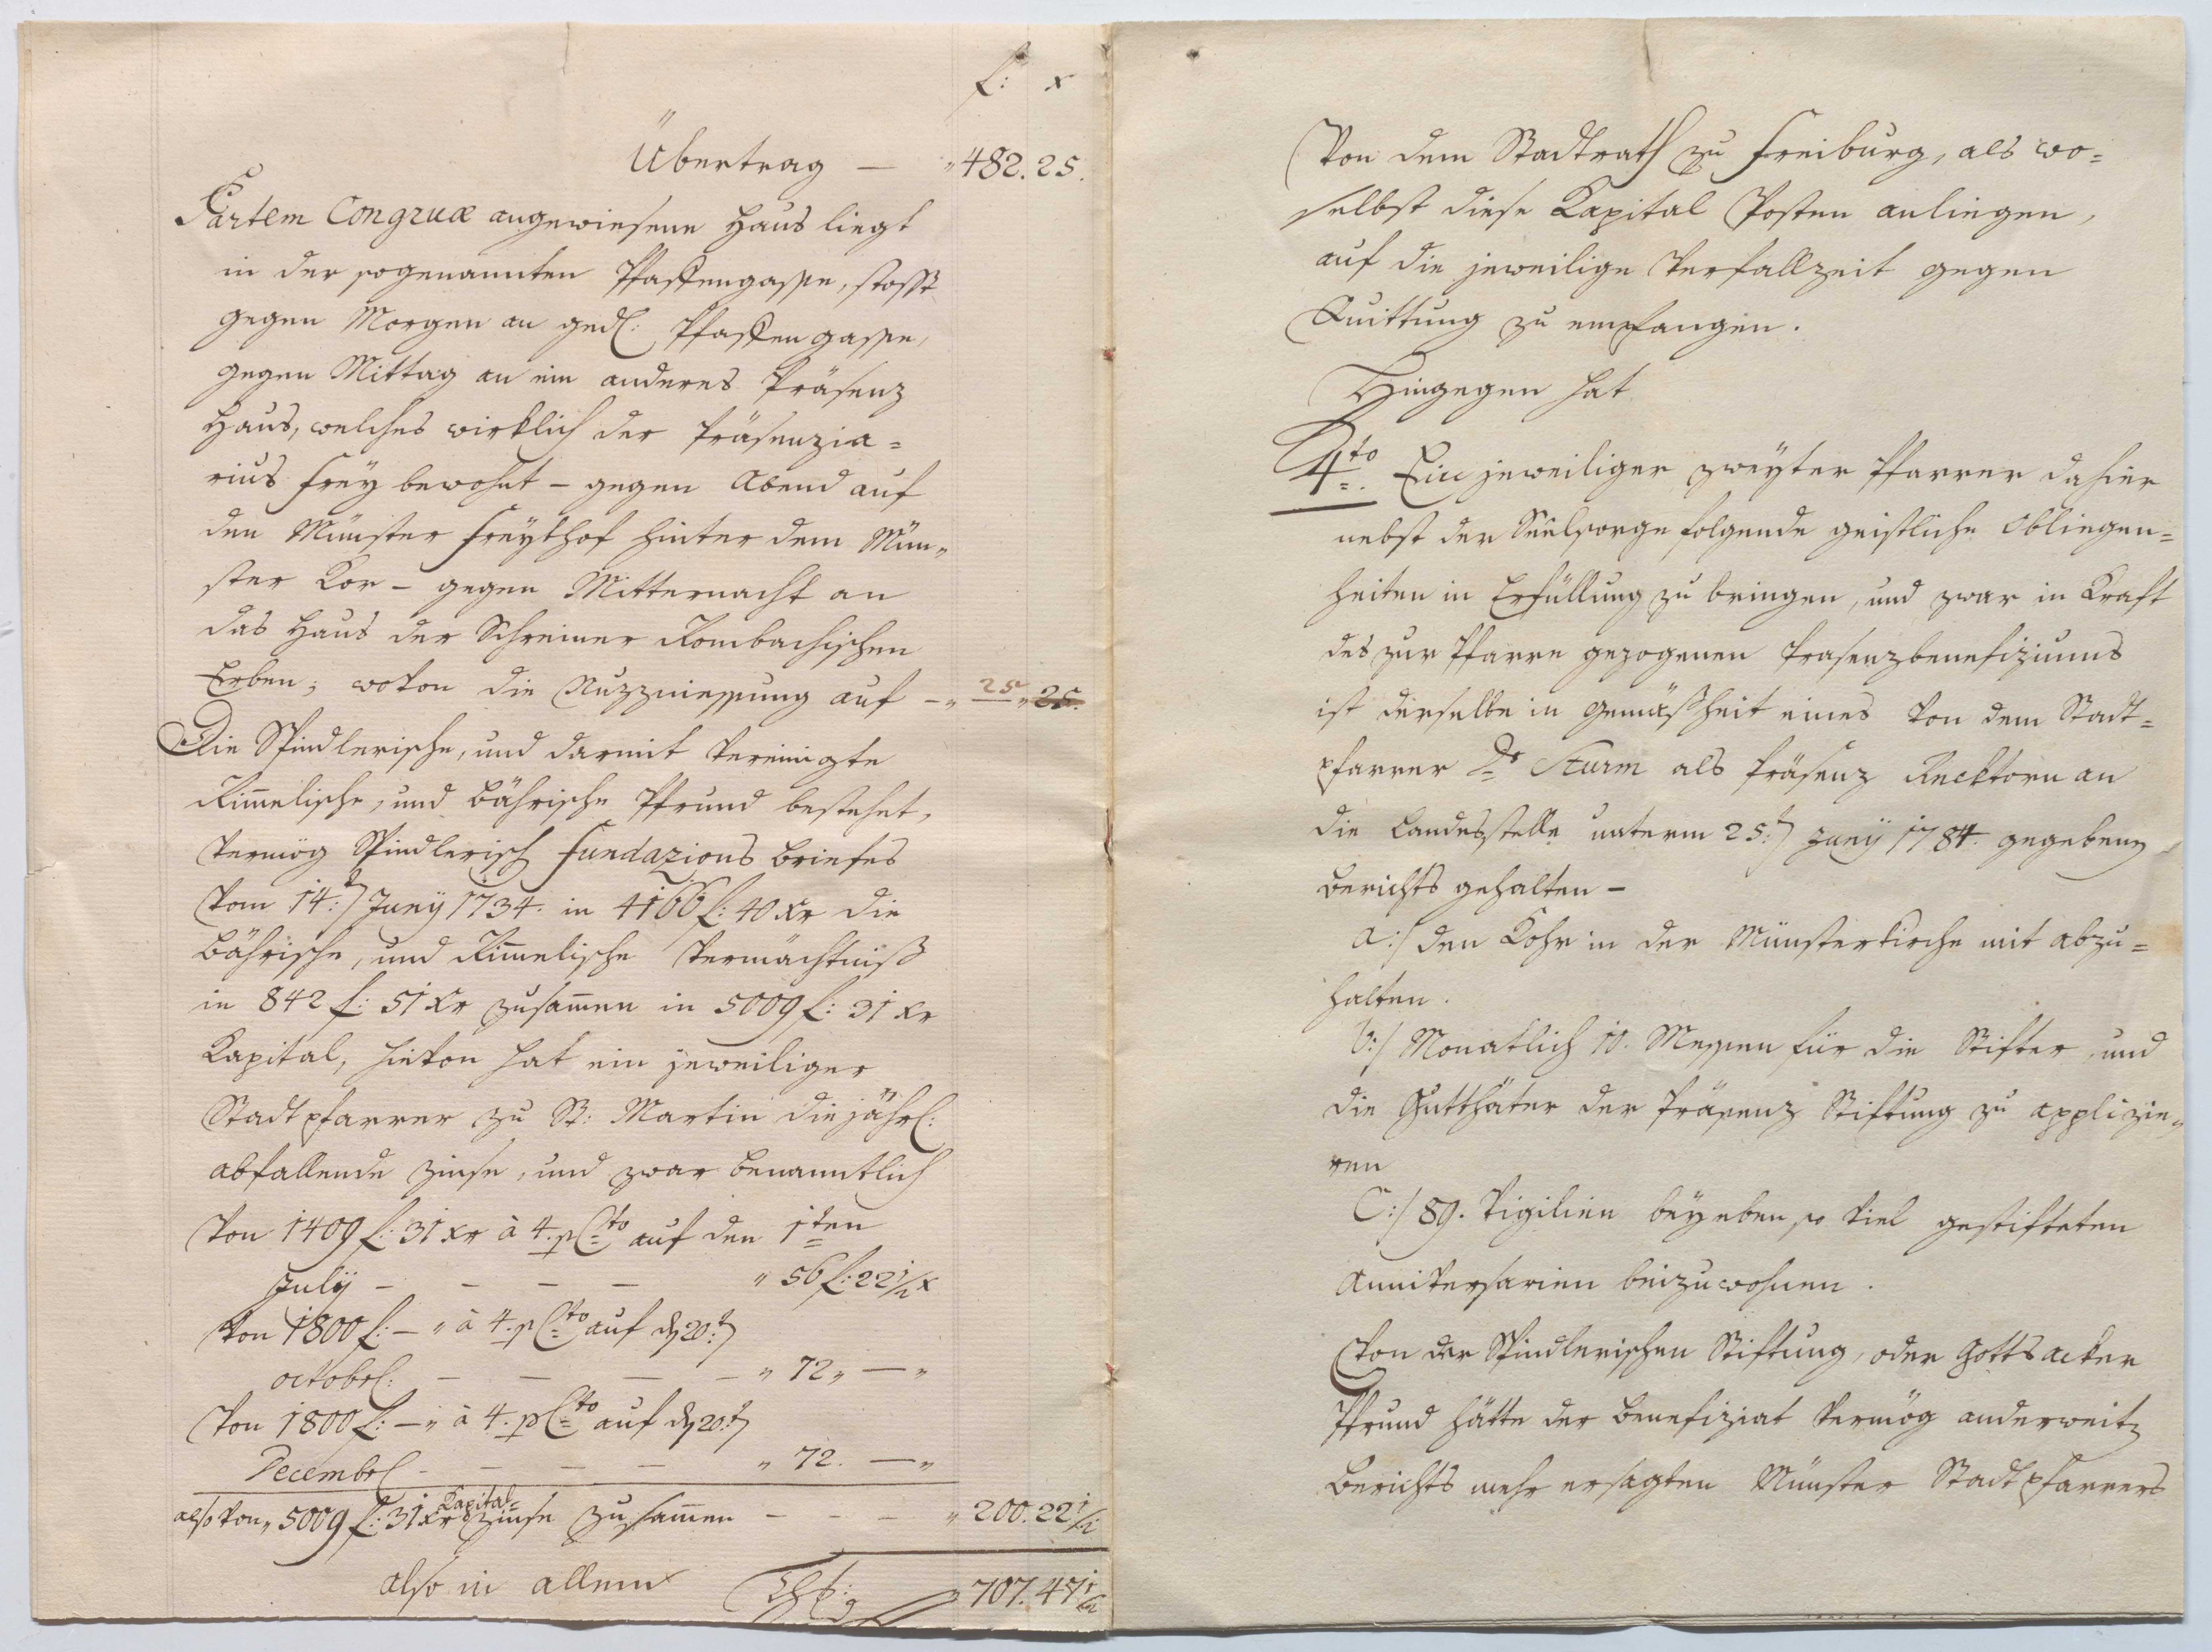 f: x
Übertrag — " 482. 25.
Partem Congruæ angewiesene Haus liegt
in der sogenannten Pfaffengasse, stosst
gegen Morgen an gedl: Pfaffengasse,
gegen Mittag an ein anderes Präsenz
Haus, welches wirklich der Präsenzia=
rius Frey bewohnt – gegen Abend auf
den Münster Freythof hinter dem Mün„
ster Kor – gegen Mitternacht an
das Haus der Schreiner Rombachischen
Erben; wovon die Nuzniessung auf – „ 25 „ 25.
Die Spindlerische, und darmit vereinigte
Rim̄elische, und Bährische Pfrund bestehet,
vermög Spindlerisch Fundazions Briefes
vom 14:t Juny 1734. in 4166 f: 40 xr die
Bährische, und Rim̄elische Vermächtniß
in 842 f: 51 xr zusam̄en in 5009 f: 31 xr
Kapital, hievon hat ein jeweiliger
Stadtpfarrer zu St: Martin die jährl:
abfallende Zinse, und zwar benanntlich
Von 1409 f: 31 xr à 4. pCto auf den 1ten
July – – – – „ 56 f: 22 1/2 x
Von 1800 f: – „ à 4. pCto auf den 20:t
Octobel: – – – – „ 72 „ — „
Von 1800 f: – „ à 4. pCto auf den 20:t
Decembel – – – – „ 72. — „
also von „ 5009 f: 31 xr Kapital= Zinse zusam̄en – – – „ 200. 22 1/2
also in allem „ 707. 47 1/2
Von dem Stadtrath zu Freiburg, als wo=
selbst diese Kapital Posten anliegen,
auf die jeweilige Verfallzeit gegen
Quittung zu empfangen.
Hingegen hat
4to. Ein jeweiliger zweyter Pfarrer dahier
nebst der Seelsorge folgende geistliche Obliegen=
heiten in Erfüllung zu bringen, und zwar in Kraft
des zur Pfarre gezogenen Prasenzbenefiziums
ist derselbe in Gemäßheit eines von dem Stadt=
pfarrer Dr Sturm als Präsenz Recktorn an
die Landesstelle unterm 25:t Juny 1784. gegebenen
Berichts gehalten –
a:/ den Kohr in der Münsterkirche mit abzu=
halten.
b:/ Monatlich 10. Messen für die Stifter, und
die Gutthäter der Präsenz Stiftung zu applizie„
ren
C:/ 89. Vigilien bey eben so viel gestifteten
Anniversarien beizuwohnen.
Von der Spindlerischen Stiftung, oder Gottsacker
Pfrund hätte der Benefiziat vermög anderweit
Berichts mehr ersagten Münster Stadtpfarrers